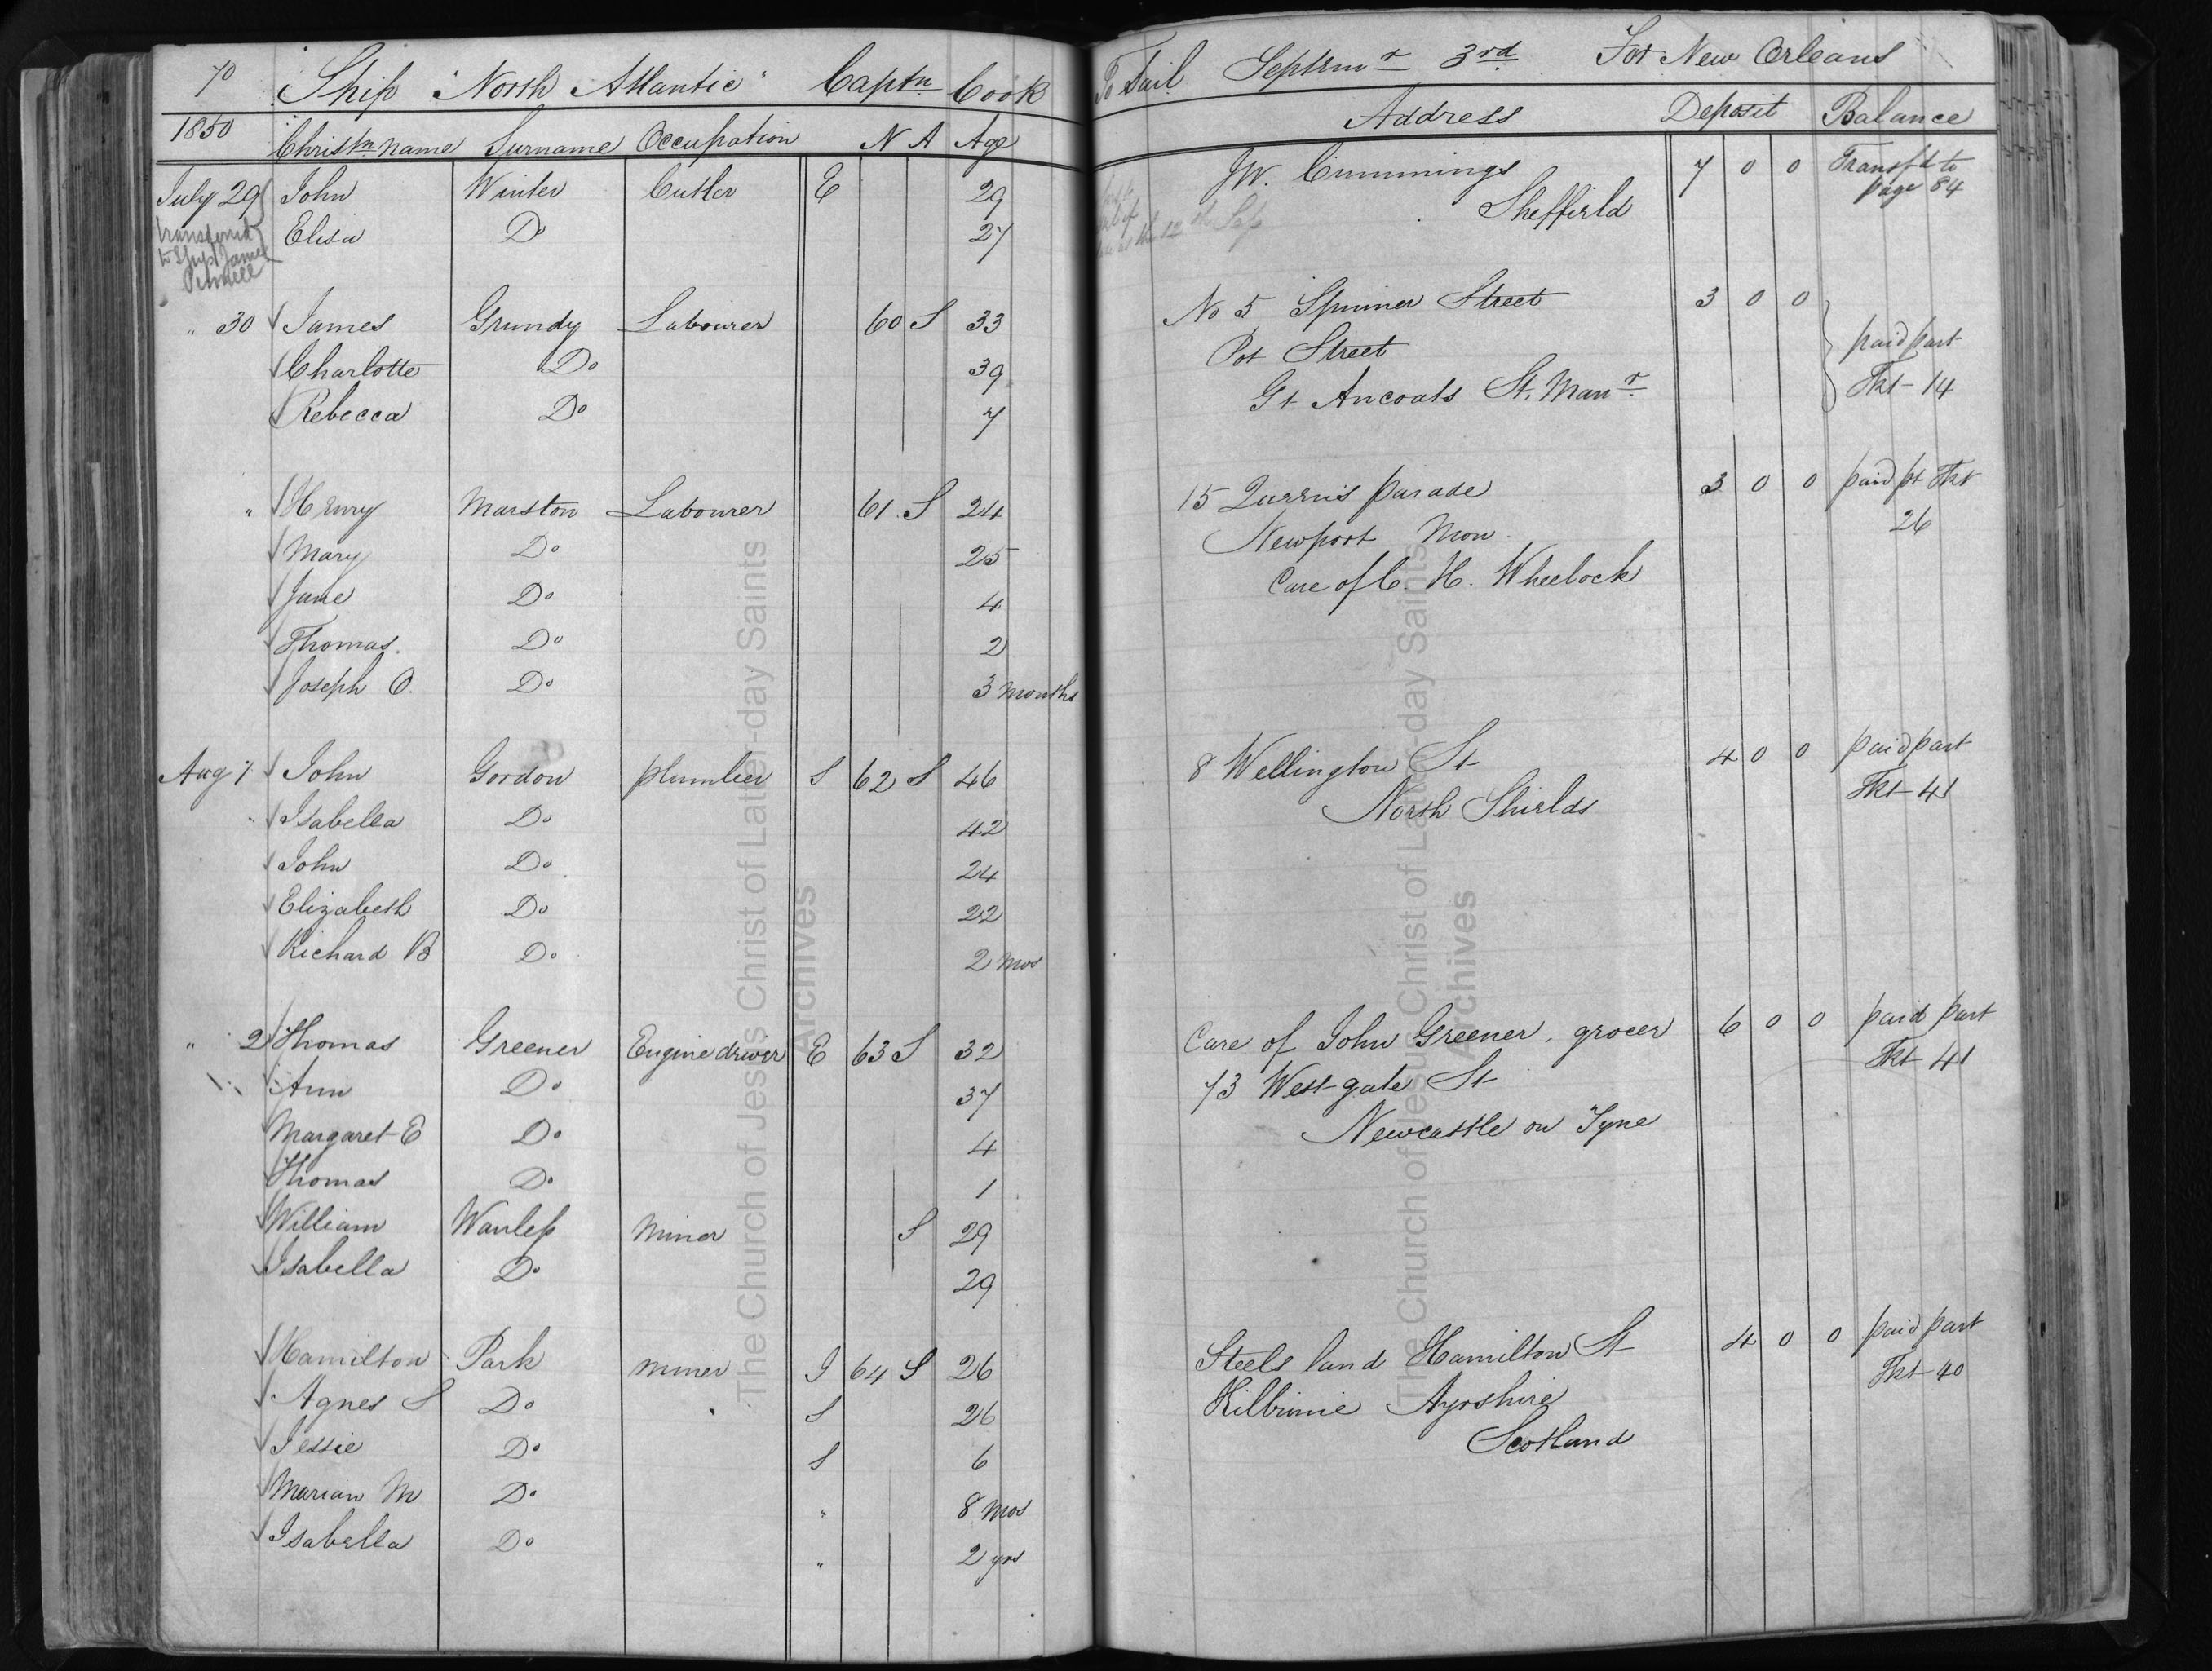 70 Ship "North Atlantic" Captn Cook To Sail Septemr 3rd For New Orleans
1850 Christn name Surname Occupation N A Age Address Deposit Balance
July 29 John Winter Cutler E 29 JW. Cummings 7 0 0 Transfd to
page 84
Elisa Do 27 Sheffield
transferred
to Ship James
Pennell
the 12th Sep
" 30 James Grundy Labourer 60 S 33 No 5 Spinner Street 3 0 0
Charlotte Do 39 Pot Street paid part
Rebecca Do 7 Gt Ancoats St. Manr Tkt 14
" Henry Marston Labourer 61 S 24 15 Queens parade 3 0 0 paid pt Tkt
26
Mary Do 25 Newport Mon
Jane Do 4 Care of C. H. Wheelock
Thomas. Do 2
Joseph O. Do 3 months
Aug 1 John Gordon plumber S 62 S 46 8 Wellington St 4 0 0 paid part
Isabella Do 42 North Shields Tkt 41
John Do 24
Elizabeth Do 22
Richard B Do 2 mos
" 2 Thomas Greener Engine driver E 63 S 32 Care of John Greener, grocer 6 0 0 paid part
Ann Do 37 73 West gate St Tkt 41
Margaret E Do 4 Newcastle on Tyne
Thomas Do 1
William Wanless miner S 29
Isabella Do 29
Hamilton Park miner I 64 S 26 Steels land Hamilton St 4 0 0 paid part
Agnes S Do S 26 Kilbirnie Ayrshire Tkt 40
Jessie Do S 6 Scotland
Marian M Do " 8 mos
Isabella Do " 2 yrs
The Church of Jesus Christ of Latter-day Saints
Archives
The Church of Jesus Christ of Latter-day Saints
Archives